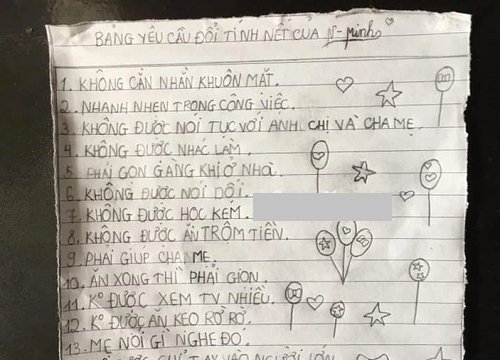 BẢNG YÊU CẦU ĐỔI TÍNH NẾT CỦA N-minh
1. KHÔNG CẦN NHẮN KHUÔN MẶT.
2. NHANH NHEN TRONG CÔNG VIỆC.
3. KHÔNG ĐƯỢC NÓI TỤC VỚI ANH CHỊ VÀ CHA MẸ.
4. KHÔNG ĐƯỢC NHÁC LÀM.
5. PHẢI GỌN GÀNG KHI Ở NHÀ.
6. KHÔNG ĐƯỢC NÓI DỐI.
7. KHÔNG ĐƯỢC HỌC KÉM.
8. KHÔNG ĐƯỢC ĂN TRỘM TIỀN.
9. PHẢI GIÚP CHA MẸ.
10. ĂN XONG THÌ PHẢI GIỌN.
11. K° ĐƯỢC XEM TV NHIỀU.
12. K° ĐƯỢC ĂN KẸO RƠ RỚ.
13. MẸ NÓI GÌ NGHE ĐÓ.